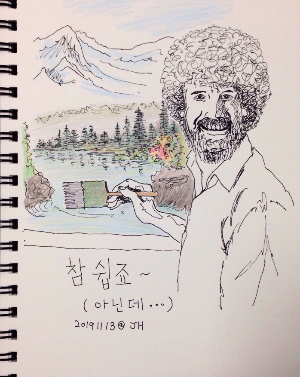 참 쉽죠~
(아닌데...)
20191113@ JH